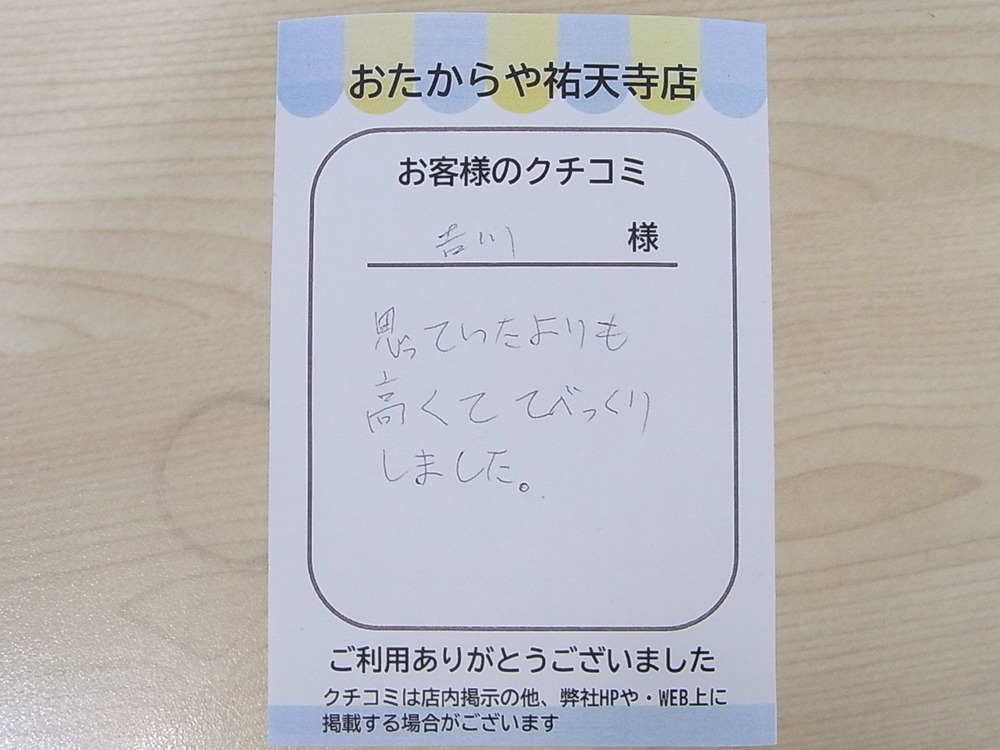 おたからや祐天寺店
お客様のクチコミ
吉川 様
思っていたよりも
高くててびっくり
しました。
ご利用ありがとうございました
クチコミは店内掲示の他、弊社HPや・WEB上に
掲載する場合がございます